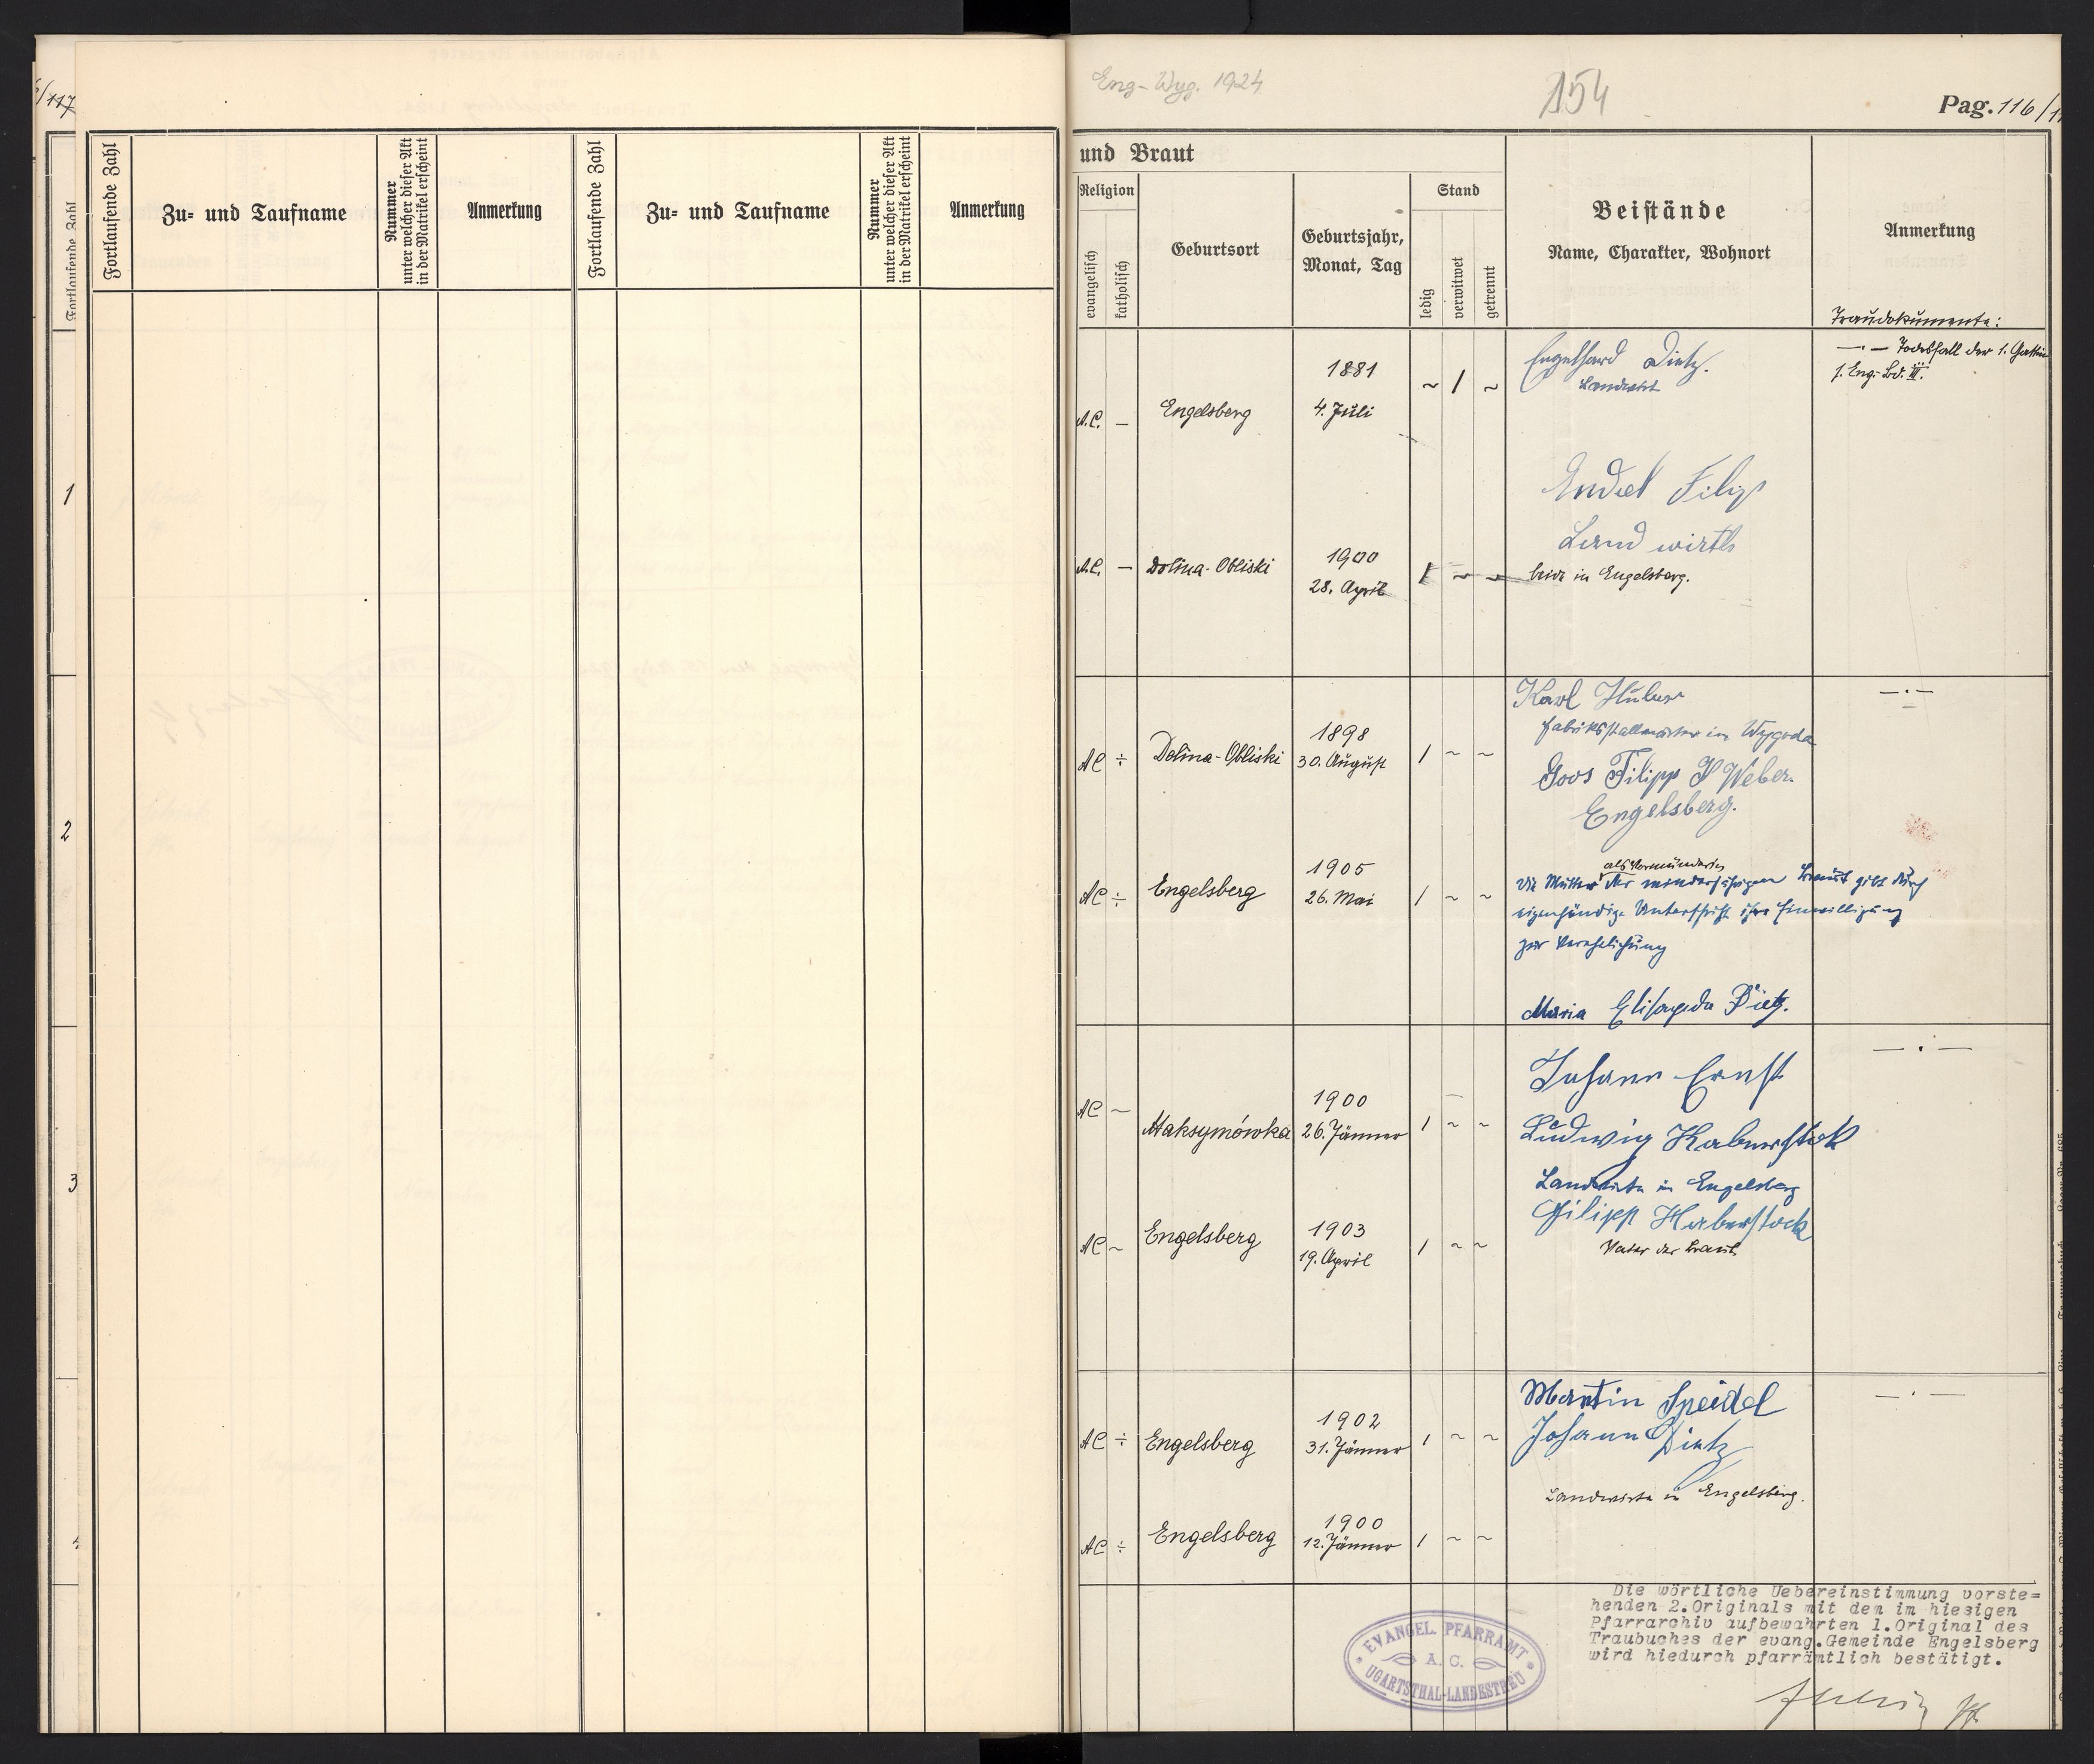 /117
Fortlaufende Zahl
1
2
3
4
Fortlaufende Zahl
Zu- und Taufname
Nummer
unter welcher dieser Akt
in der Matrikel erscheint
Anmerkung
Fortlaufende Zahl
Zu- und Taufname
Nummer
unter welcher dieser Akt
in der Matrikel erscheint
Anmerkung
Eng-Wyg. 1924
154
Pag. 116/11
und Braut
Religion
evangelisch
katholisch
Geburtsort
Geburtsjahr,
Monat, Tag
Stand
ledig
verwitwet
getrennt
Beistände
Name, Charakter, Wohnort
Anmerkung
Traudokumente:
A.C. — Engelsberg
1881
4. Juli
~ 1 ~
Engelhard Dietz.
Landwirt
—·— Todesfall der 1. Gattin
s. Eng. Bd. III.
Filip
Landwirth
A.C. — Dolina-Obliski
1900
28. April
1 ~ ~
beide in Engelsberg.
AC ÷ Dolina-Obliski
1898
30. August
1 ~ ~
Karl Huber
Fabriksstallmeister in Wygoda
Goos Filipp Weber.
Engelsberg.
—·—
AC ÷ Engelsberg
1905
26. Mai
1 ~ ~
als Vormünderin
Die Mutter der minderjährigen Braut gibt durch
eigenhändige Unterschrift ihre Einwilligung
zur Verehelichung
Maria Dietz.
AC ~ Maksymówka
1900
26. Jänner
1 ~ ~
Johann Ernst
Ludwig Haberstok
Landwirte in Engelsberg
—·—
AC ~ Engelsberg
1903
19. April
1 ~ ~
Filipp Haberstock
Vater der Braut
AC ÷ Engelsberg
1902
31. Jänner
1 ~ ~
Martin Speidel
Johann Dietz
Landwirte in Engelsberg.
—·—
AC ÷ Engelsberg
1900
12. Jänner
1 ~ ~
Die wörtliche Uebereinstimmung vorste=
henden 2.Originals mit dem im hiesigen
Pfarrarchiv aufbewahrten 1.Original des
Traubuches der evang.Gemeinde Engelsberg
wird hiedurch pfarrämtlich bestätigt.
EVANGEL. PFARRAMT
A. C.
UGARTSTHAL-LANDESTREU